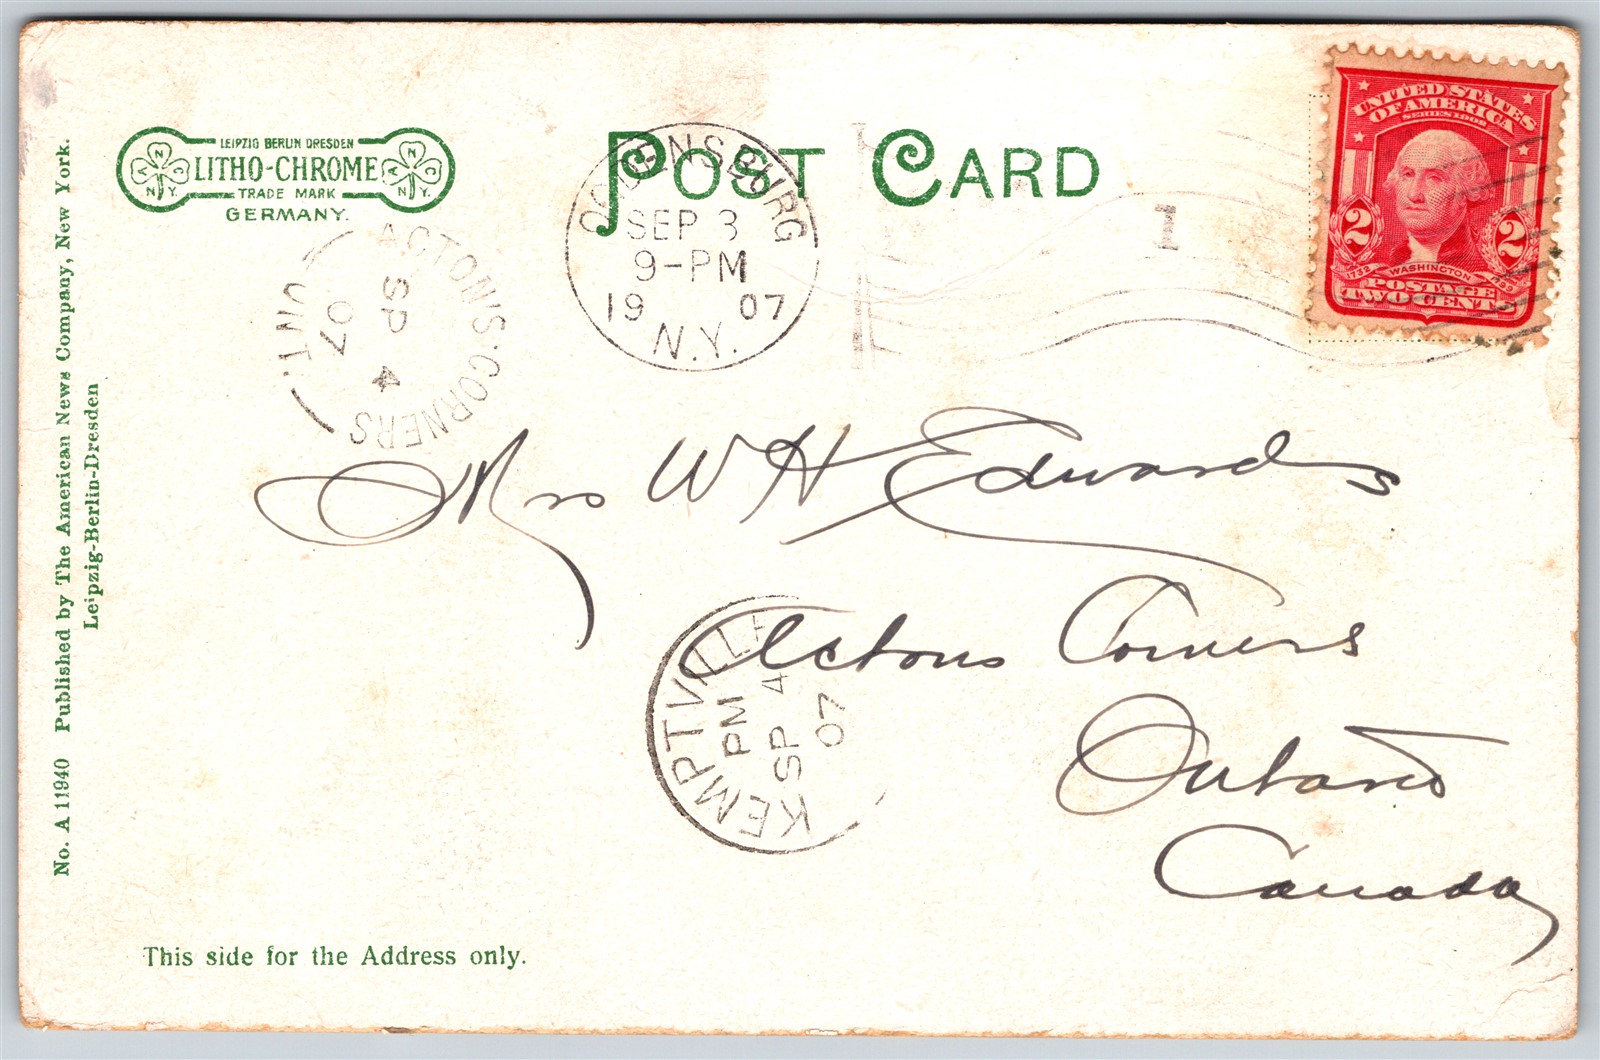 POST CARD
LEIPZIG BERLIN DRESDEN
LITHO-CHROME
TRADE MARK
GERMANY.
N N
A C A C
N.Y. N.Y.
OGDENSBURG
SEP 3
9-PM
19 07
N.Y.
1
UNITED STATES
OF AMERICA
SERIES 1902
2 2
1732 WASHINGTON 1799
POSTAGE
TWO CENTS
ACTON'S-CORNERS
SP 4
07
ONT
Mrs W H Edwards
Actons Corners
Ontario
Canada
KEMPTVILLE
PM
SP 4
07
No. A 11940 Published by The American News Company, New York.
Leipzig-Berlin-Dresden
This side for the Address only.